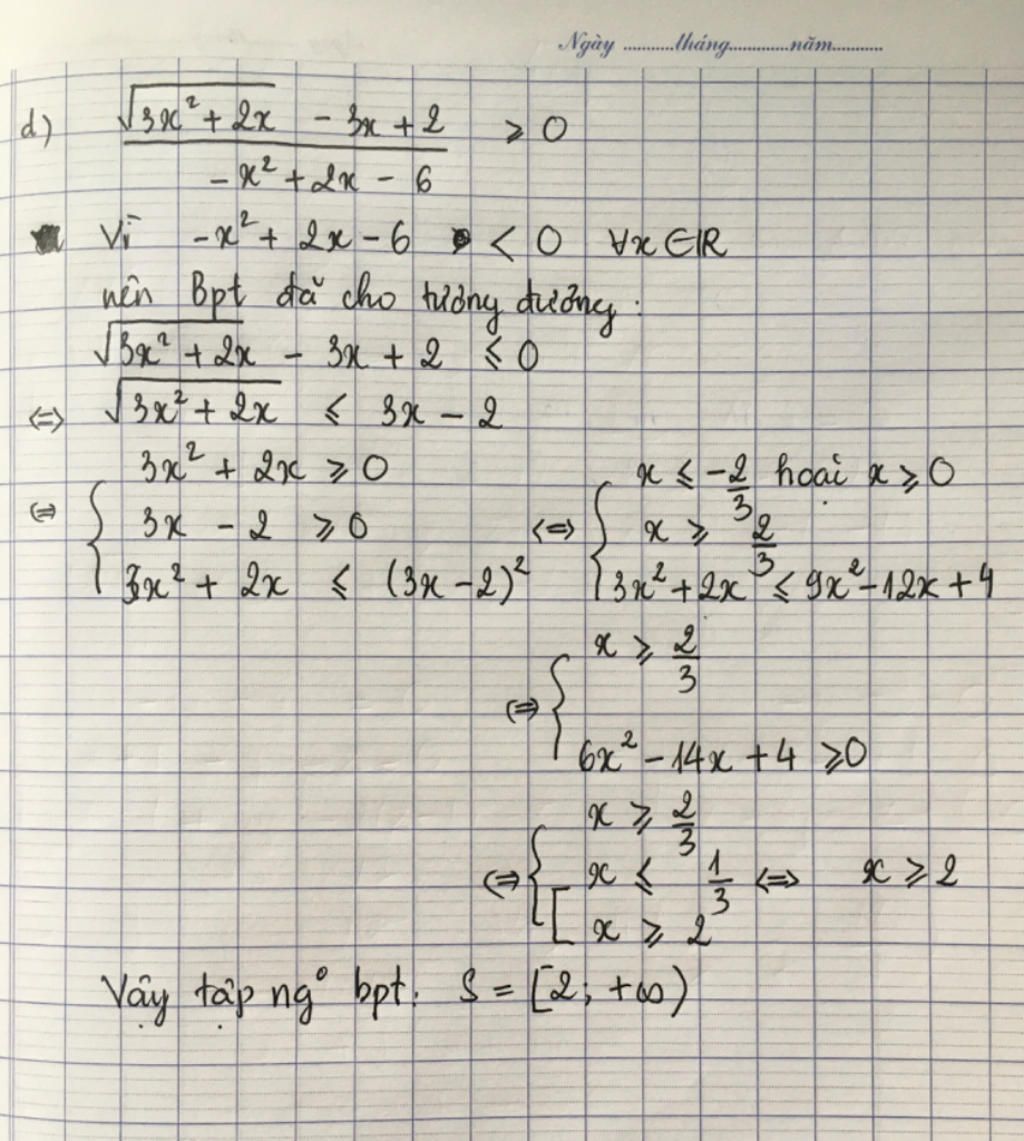 Ngày ...........tháng.............năm...........
d) (√(3x² + 2x) - 3x + 2) / (-x² + 2x - 6) ⩾ 0
Vì -x² + 2x - 6 < 0 ∀x ∈ ℝ
nên Bpt đã cho tương đương :
√(3x² + 2x) - 3x + 2 ⩽ 0
⇔ √(3x² + 2x) ⩽ 3x - 2
⇔ { 3x² + 2x ⩾ 0
3x - 2 ⩾ 0
3x² + 2x ⩽ (3x - 2)²
⇔ { x ⩽ -2/3 hoặc x ⩾ 0
x ⩾ 2/3
3x² + 2x ⩽ 9x² - 12x + 4
⇔ { x ⩾ 2/3
6x² - 14x + 4 ⩾ 0
⇔ { x ⩾ 2/3
[ x ⩽ 1/3
x ⩾ 2
⇔ x ⩾ 2
Vậy tập ng° bpt: S = [2; +∞)